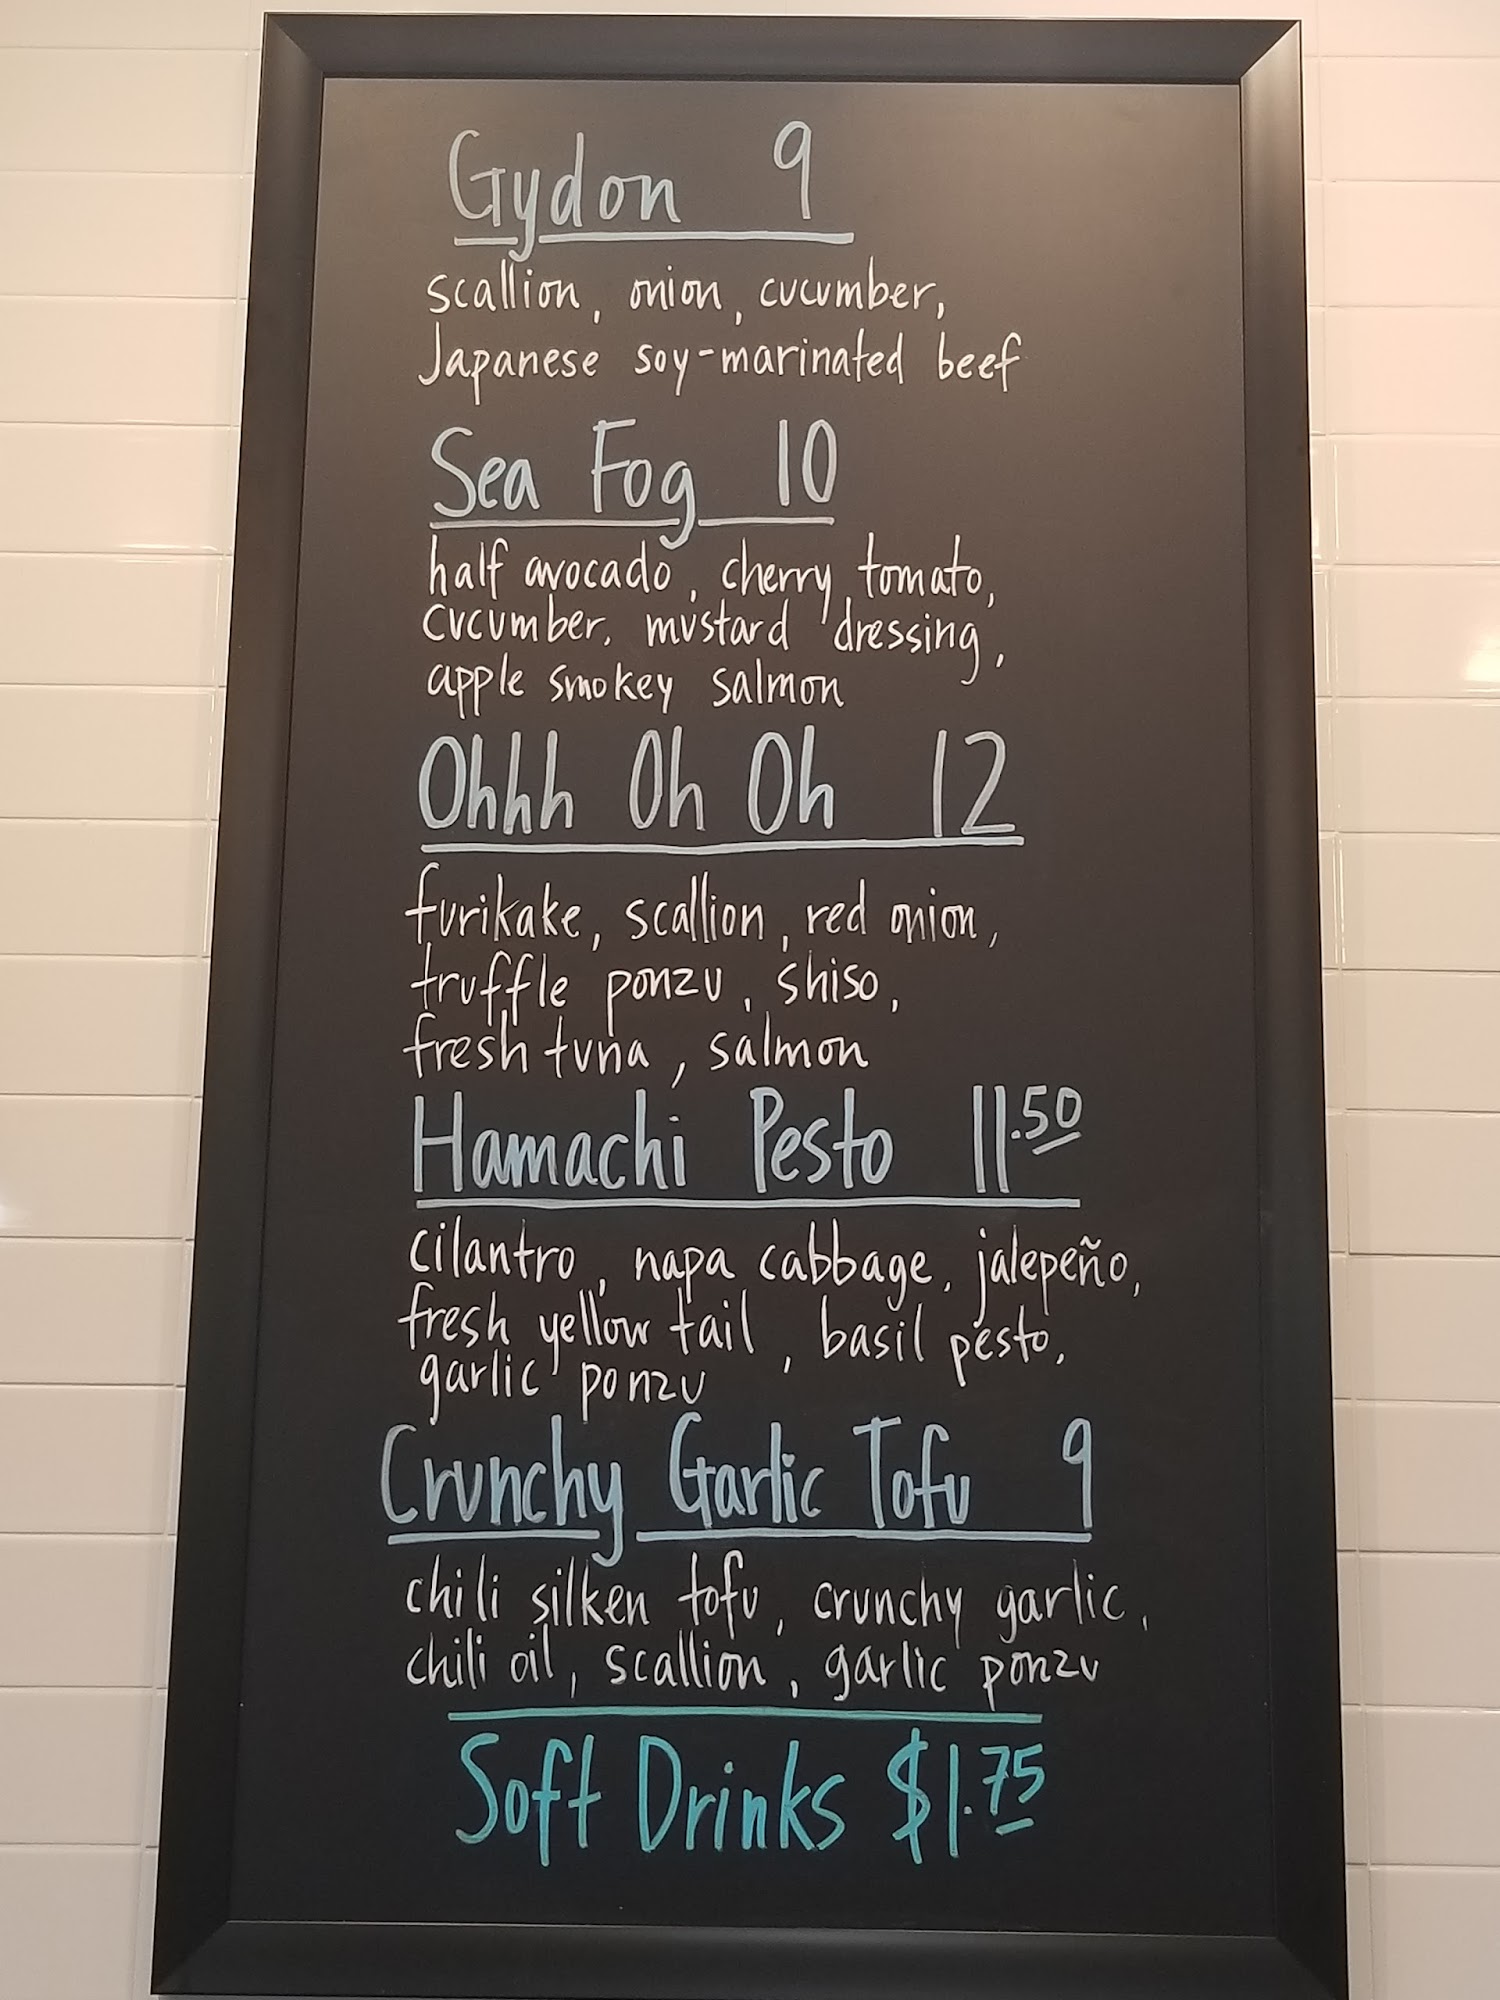 Gydon 9
scallion, onion, cucumber,
Japanese soy-marinated beef
Sea Fog 10
half avocado, cherry tomato,
cucumber, mustard dressing,
apple smokey salmon
Ohhh Oh Oh 12
furikake, scallion, red onion,
truffle ponzu, shiso,
fresh tuna, salmon
Hamachi Pesto 11.50
cilantro, napa cabbage, jalepeño,
fresh yellow tail, basil pesto,
garlic ponzu
Crunchy Garlic Tofu 9
chili silken tofu, crunchy garlic,
chili oil, scallion, garlic ponzu
Soft Drinks $1.75